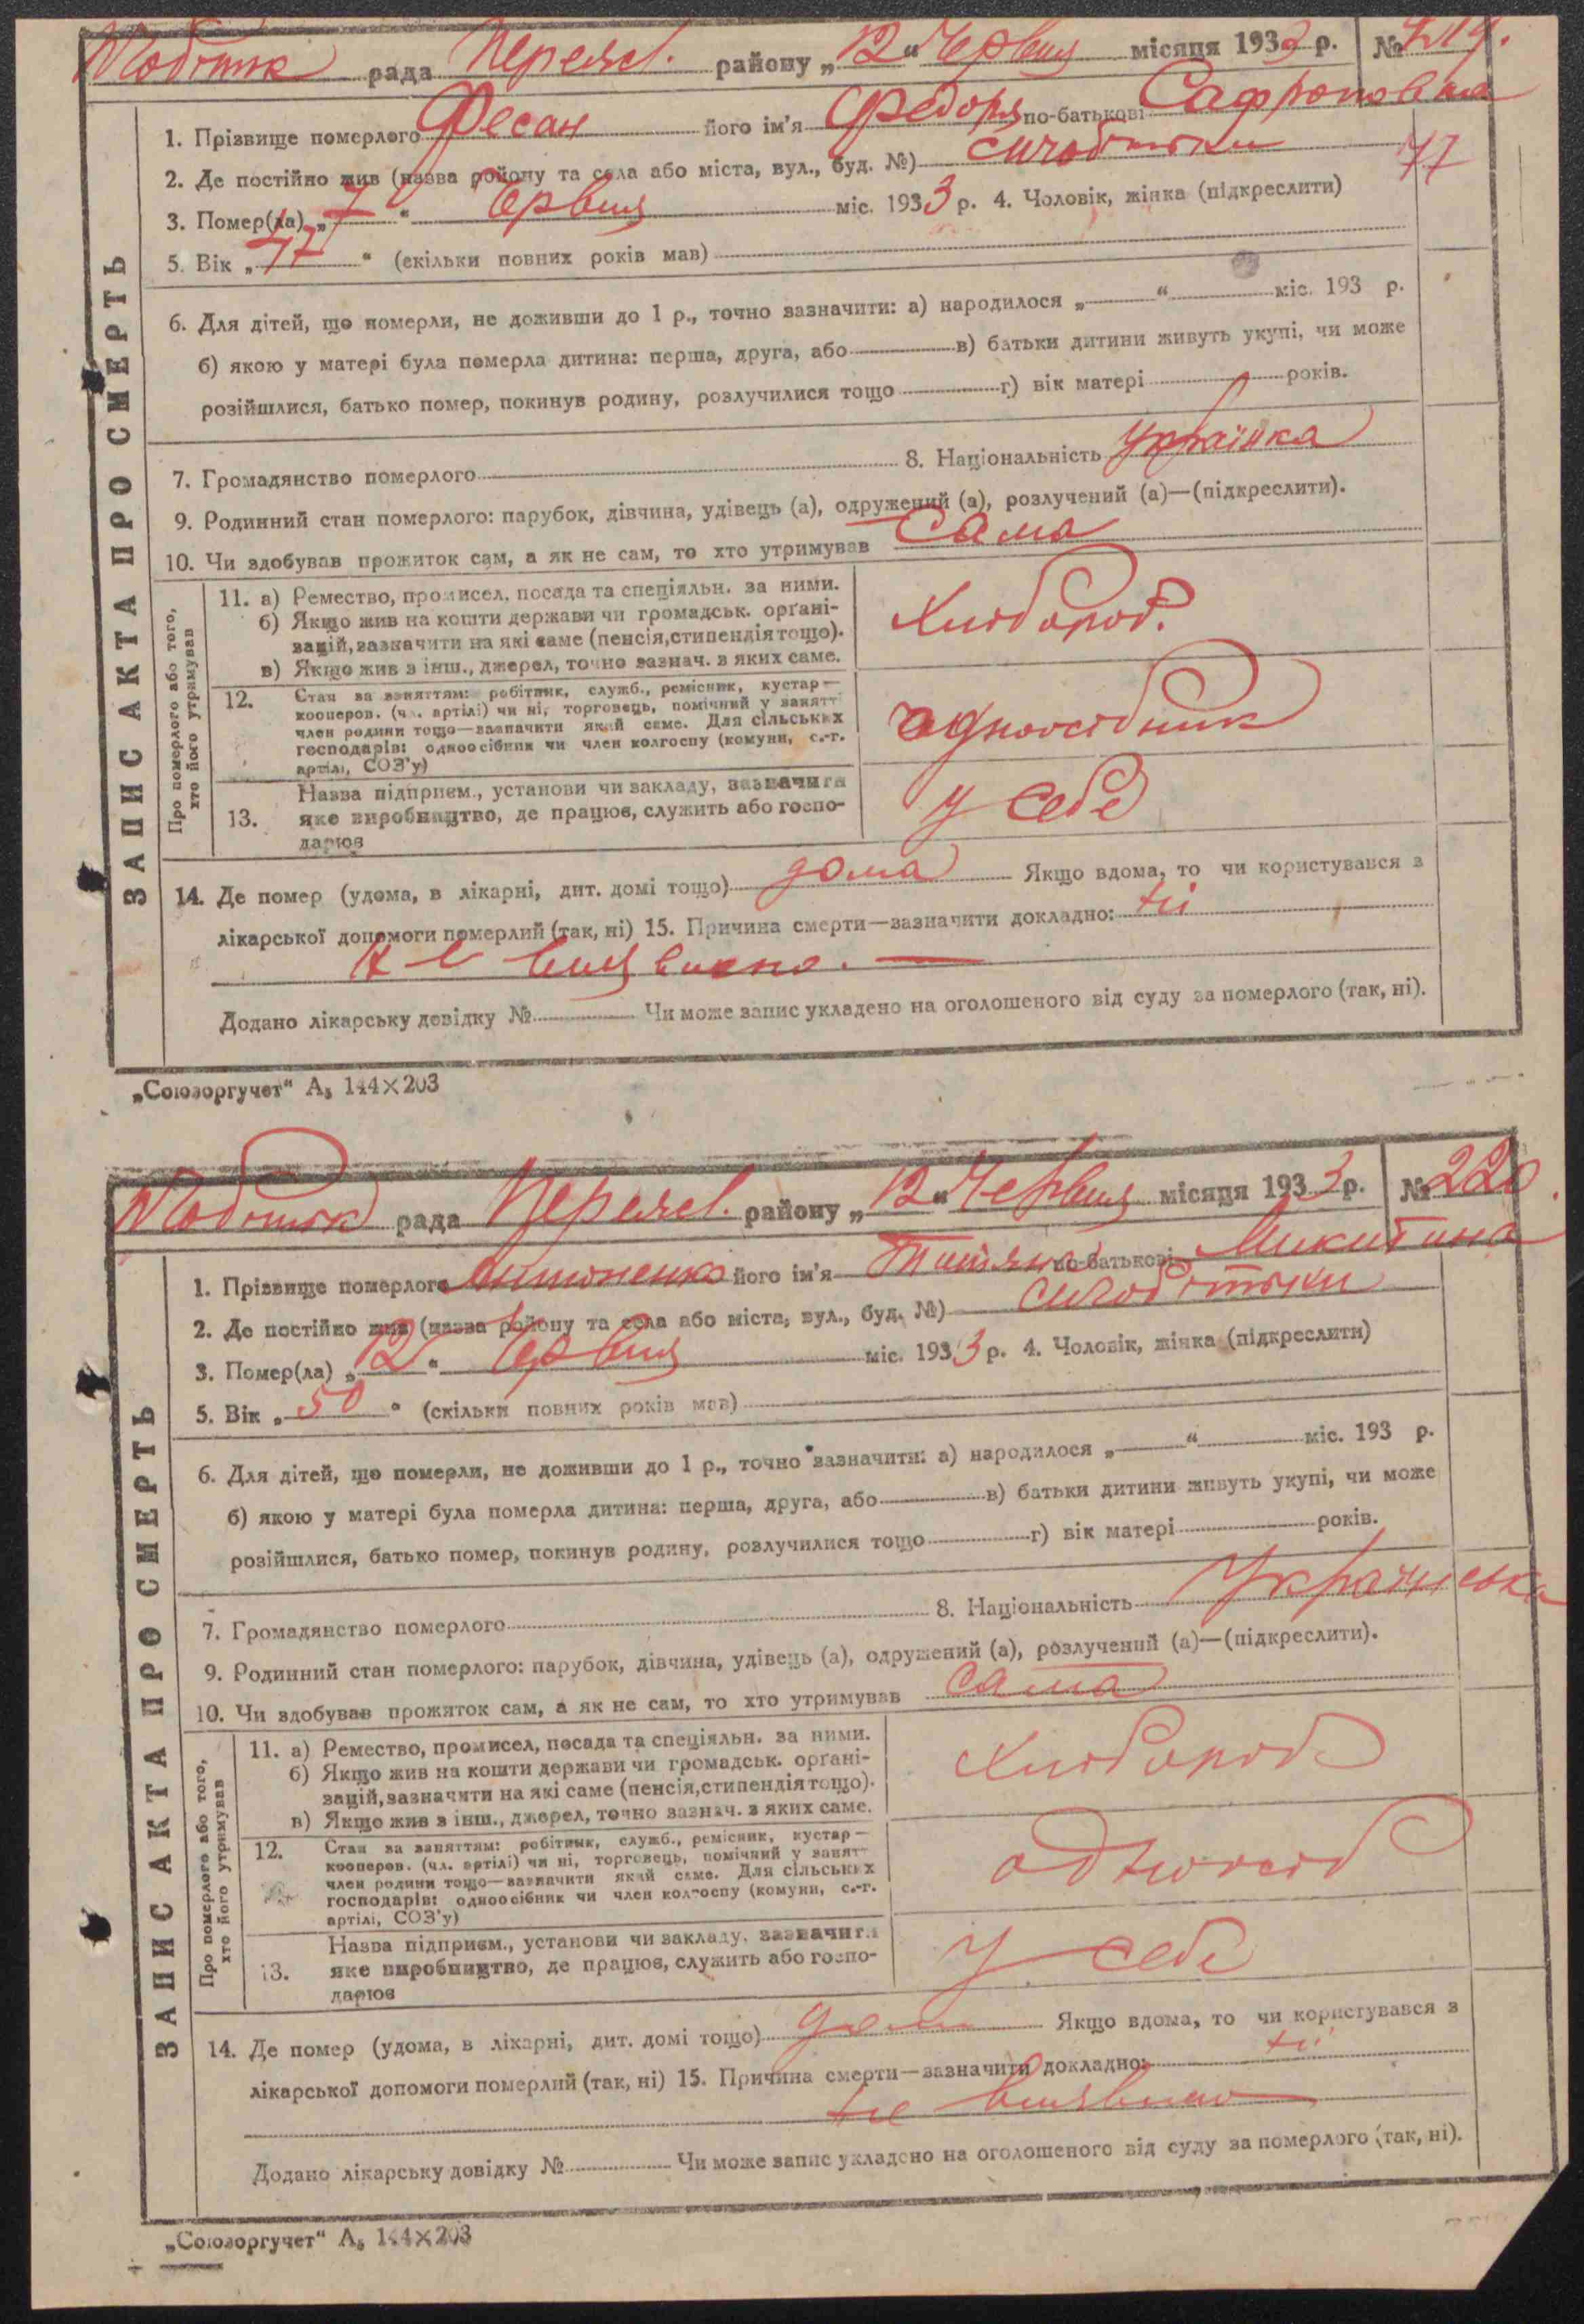 рада Переясл. району „12“ Червня місяця 1933 р. № 219.
ЗАПИС АКТА ПРО СМЕРТЬ
1. Прізвище померлого Фесан його ім'я Федоря по-батькові Сафроновна
2. Де постійно жив (назва району та села або міста, вул., буд. №)
77
3. Помер(ла) „7“ Червня міс. 1933 р. 4. Чоловік, жінка (підкреслити)
5. Вік „77“ (скільки повних років мав)
6. Для дітей, що померли, не доживши до 1 р., точно зазначити: а) народилося „ “ міс. 193 р.
б) якою у матері була померла дитина: перша, друга, або в) батьки дитини живуть укупі, чи може
розійшлися, батько помер, покинув родину, розлучилися тощо г) вік матері років.
7. Громадянство померлого 8. Національність Українка
9. Родинний стан померлого: парубок, дівчина, удівець (а), одружений (а), розлучений (а)—(підкреслити).
10. Чи здобував прожиток сам, а як не сам, то хто утримував Сама
Про померлого або того, хто його утримував
11. а) Ремество, промисел, посада та спеціяльн. за ними.
б) Якщо жив на кошти держави чи громадськ. орґані-
зацій, зазначити на які саме (пенсія, стипендія тощо).
в) Якщо жив з інш., джерел, точно зазнач. з яких саме.
Хлібороб.
12. Стан за заняттям: робітник, служб., ремісник, кустар—
кооперов. (чл. артілі) чи ні, торговець, помічний у занятт
член родини тощо—зазначити який саме. Для сільських
господарів: одноосібник чи член колгоспу (комуни, с.-г.
артілі, СОЗ'у)
одноосібник
13. Назва підприєм., установи чи закладу, зазначити
яке виробництво, де працює, служить або госпо-
дарює
у себе
14. Де помер (удома, в лікарні, дит. домі тощо) дома Якщо вдома, то чи користувався з
лікарської допомоги померлий (так, ні) 15. Причина смерти—зазначити докладно: ні
не виявлено.
Додано лікарську довідку № Чи може запис укладено на оголошеного від суду за померлого (так, ні).
„Союзоргучет“ А₅ 144×203
рада Переясл. району „12“ Червня місяця 1933 р. № 220.
ЗАПИС АКТА ПРО СМЕРТЬ
1. Прізвище померлого Антоненко його ім'я Титяна по-батькові Микитина
2. Де постійно жив (назва району та села або міста, вул., буд. №)
3. Помер(ла) „12“ Червня міс. 1933 р. 4. Чоловік, жінка (підкреслити)
5. Вік „50“ (скільки повних років мав)
6. Для дітей, що померли, не доживши до 1 р., точно зазначити: а) народилося „ “ міс. 193 р.
б) якою у матері була померла дитина: перша, друга, або в) батьки дитини живуть укупі, чи може
розійшлися, батько помер, покинув родину, розлучилися тощо г) вік матері років.
7. Громадянство померлого 8. Національність
9. Родинний стан померлого: парубок, дівчина, удівець (а), одружений (а), розлучений (а)—(підкреслити).
10. Чи здобував прожиток сам, а як не сам, то хто утримував сама
Про померлого або того, хто його утримував
11. а) Ремество, промисел, посада та спеціяльн. за ними.
б) Якщо жив на кошти держави чи громадськ. орґані-
зацій, зазначити на які саме (пенсія, стипендія тощо).
в) Якщо жив з інш., джерел, точно зазнач. з яких саме.
хлібороб
12. Стан за заняттям: робітник, служб., ремісник, кустар—
кооперов. (чл. артілі) чи ні, торговець, помічний у занятт
член родини тощо—зазначити який саме. Для сільських
господарів: одноосібник чи член колгоспу (комуни, с.-г.
артілі, СОЗ'у)
одноосіб
13. Назва підприєм., установи чи закладу, зазначити
яке виробництво, де працює, служить або госпо-
дарює
у себе
14. Де помер (удома, в лікарні, дит. домі тощо) дома Якщо вдома, то чи користувався з
лікарської допомоги померлий (так, ні) 15. Причина смерти—зазначити докладно: ні
не виявлено
Додано лікарську довідку № Чи може запис укладено на оголошеного від суду за померлого (так, ні).
„Союзоргучет“ А₅ 144×203